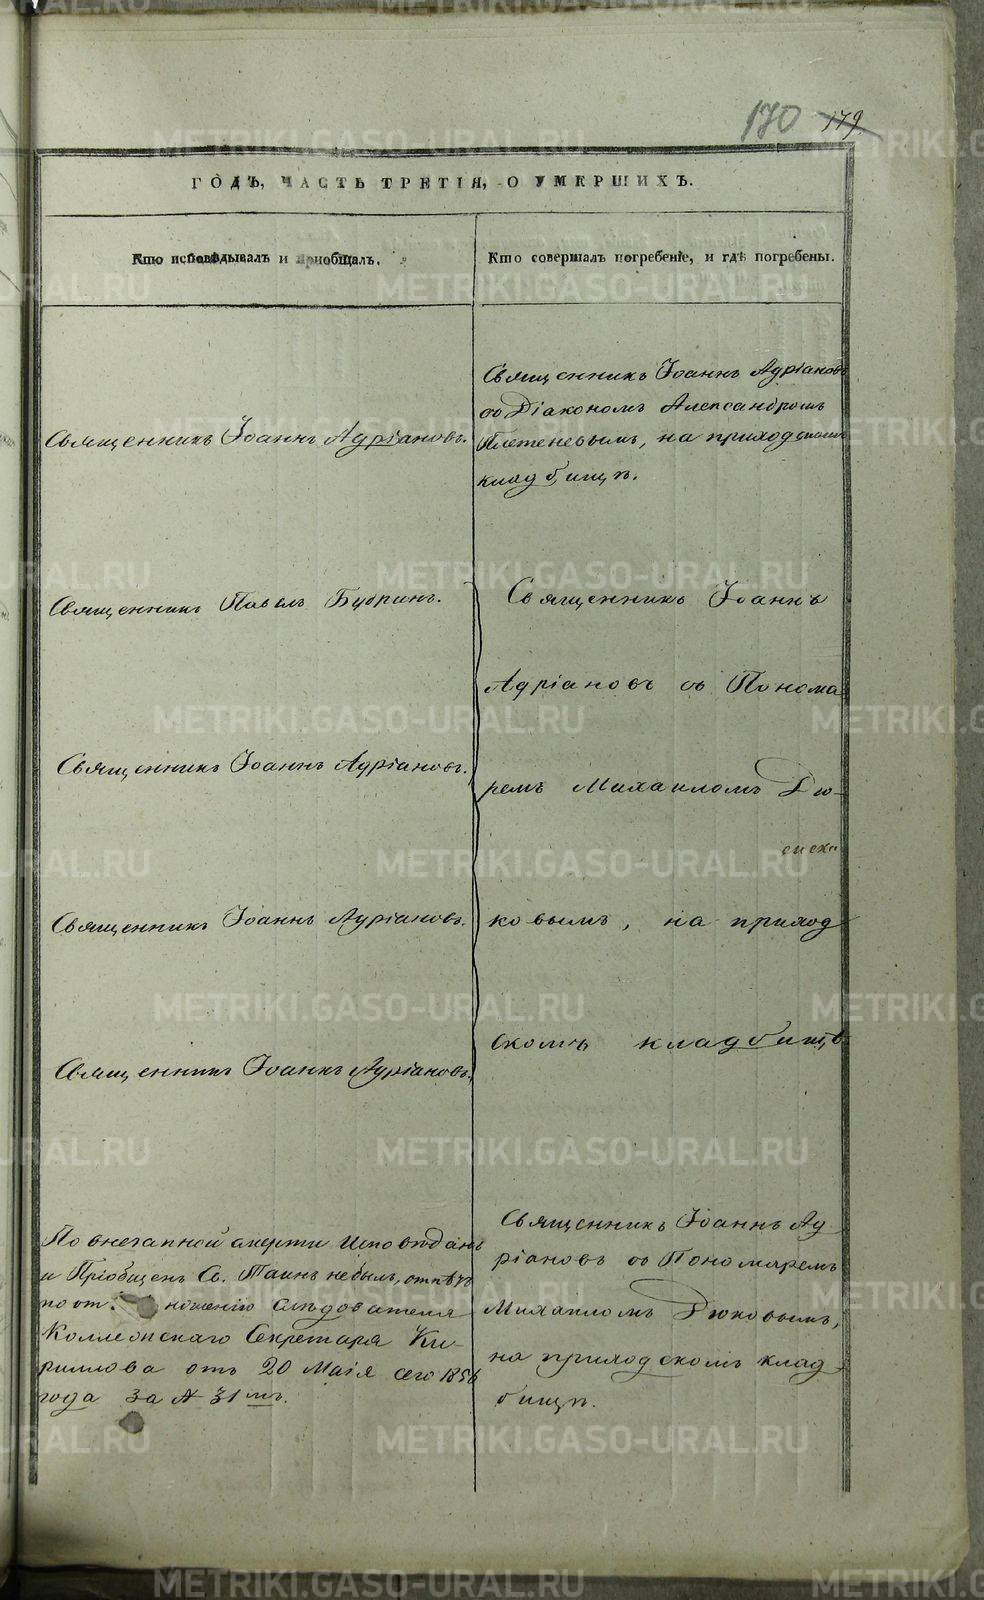 170 179
ГОДЪ, ЧАСТЬ ТРЕТІЯ, О УМЕРШИХЪ.
Кто исповѣдывалъ и приобщалъ.
Кто совершалъ погребеніе, и гдѣ погребены.
Священникъ Іоаннъ Адріановъ.
Священникъ Іоаннъ Адріановъ
съ Діакономъ Александромъ
Плетеневымъ, на приходскомъ
кладбищѣ.
Священникъ Павелъ Бубринъ.
Священникъ Іоаннъ Адріановъ.
Священникъ Іоаннъ Адріановъ.
Священникъ Іоаннъ Адріановъ.
Священникъ Іоаннъ
Адріановъ съ Понома
ремъ Михаиломъ Дю-
ковымъ, на приход
скомъ кладбищѣ
По внезапной смерти Исповѣданъ
и Пріобщенъ Св. Таинъ не былъ, отпѣтъ
по от- ношенію Слѣдователя
Коллежскаго Секретаря Ки-
риллова отъ 20 Маія сего 1856
года за № 31мъ.
Священникъ Іоаннъ Ад-
ріановъ съ Пономаремъ
Михаиломъ Дюковымъ,
на приходскомъ клад-
бищѣ.
METRIKI.GASO-URAL.RU